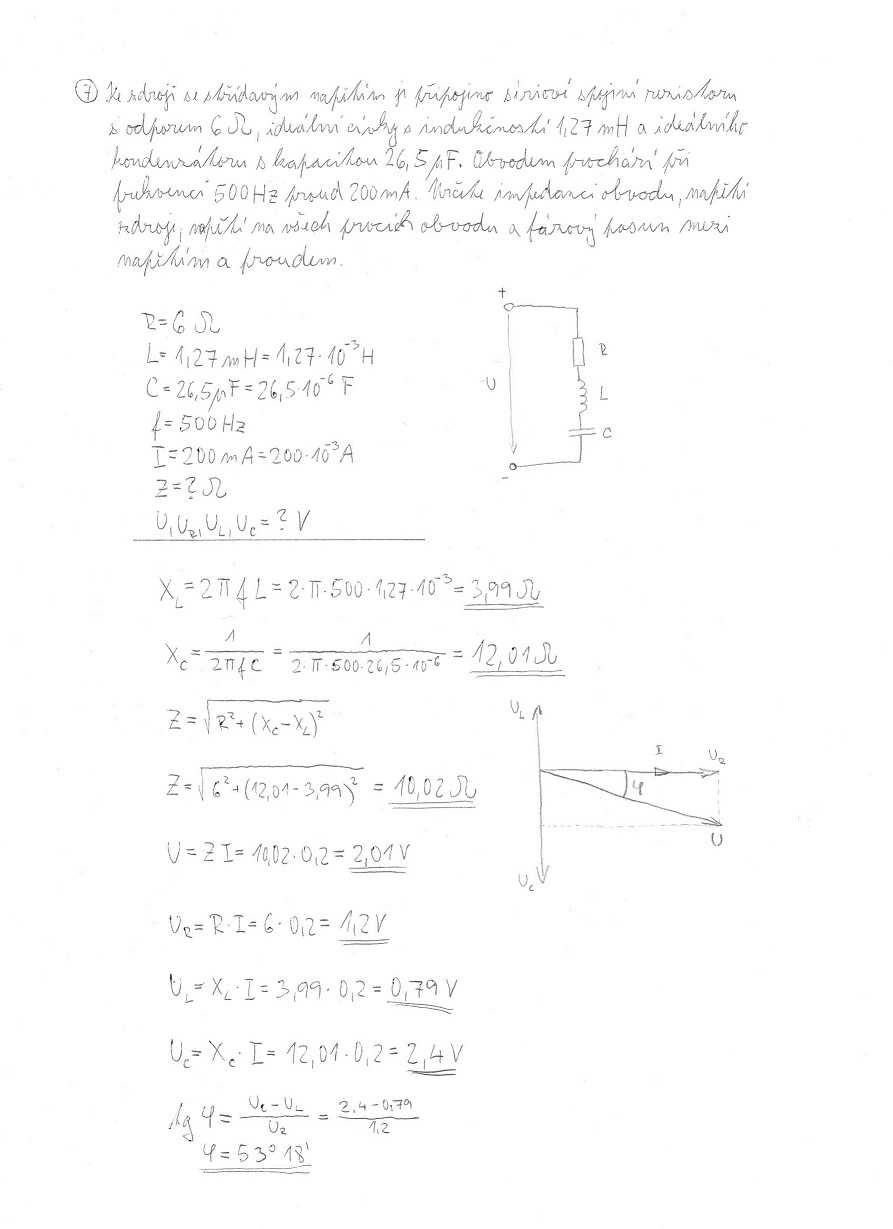 7 Ke zdroji se střídavým napětím je připojeno sériové spojení rezistoru
s odporem 6 Ω, ideální cívky s indukčností 1,27 mH a ideálního
kondenzátoru s kapacitou 26,5 μF. Obvodem prochází při
frekvenci 500 Hz proud 200 mA. Určete impedanci obvodu, napětí
zdroje, napětí na všech prvcích obvodu a fázový posun mezi
napětím a proudem.
R = 6 Ω
L = 1,27 mH = 1,27 · 10⁻³ H
C = 26,5 μF = 26,5 · 10⁻⁶ F
f = 500 Hz
I = 200 mA = 200 · 10⁻³ A
Z = ? Ω
U, U_R, U_L, U_C = ? V
+
U
R
L
C
-
X_L = 2 π f L = 2 · π · 500 · 1,27 · 10⁻³ = 3,99 Ω
X_C = 1 / (2 π f C) = 1 / (2 · π · 500 · 26,5 · 10⁻⁶) = 12,01 Ω
Z = √(R² + (X_C - X_L)²)
Z = √(6² + (12,01 - 3,99)²) = 10,02 Ω
U_L
I
U_R
φ
U
U_C
U = Z I = 10,02 · 0,2 = 2,01 V
U_R = R · I = 6 · 0,2 = 1,2 V
U_L = X_L · I = 3,99 · 0,2 = 0,79 V
U_C = X_C · I = 12,01 · 0,2 = 2,4 V
tg φ = (U_C - U_L) / U_R = (2,4 - 0,79) / 1,2
φ = 53° 18'